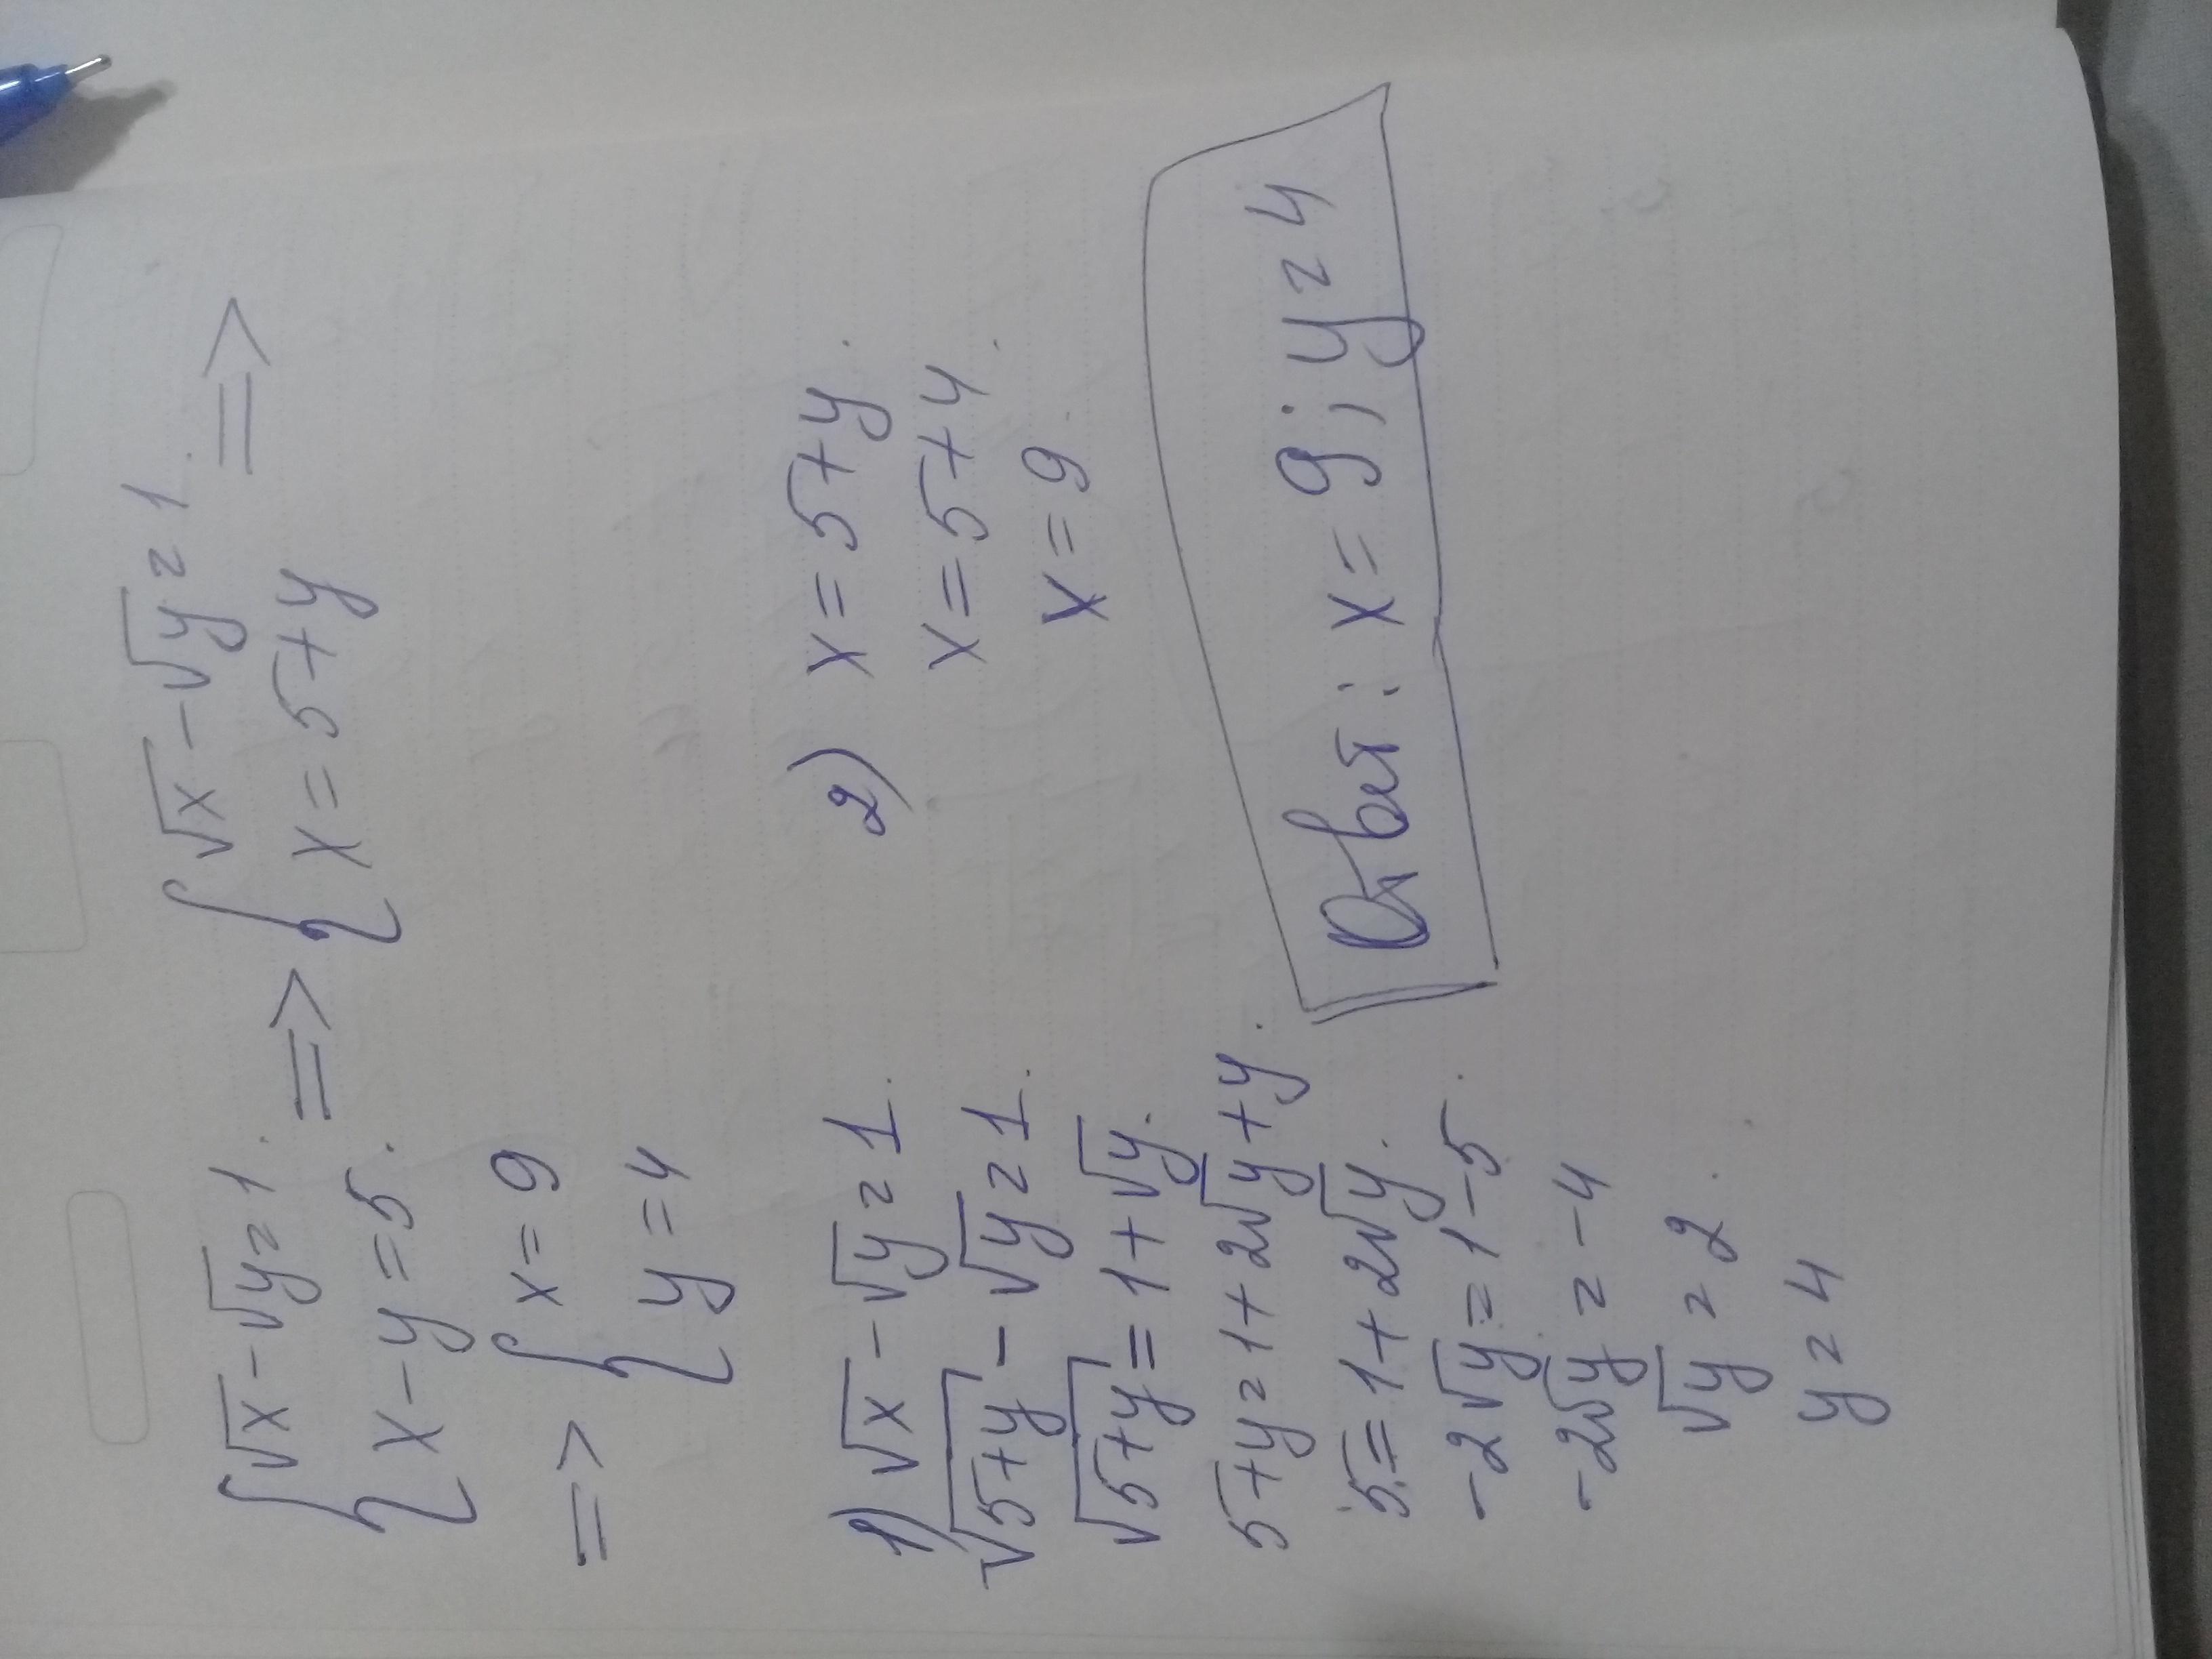 {√x - √y = 1. => {√x - √y = 1. =>
{x - y = 5. {x = 5 + y
=> {x = 9
{y = 4
1) √x - √y = 1.
√5+y - √y = 1.
√5+y = 1 + √y.
5 + y = 1 + 2√y + y.
5 = 1 + 2√y.
-2√y = 1 - 5.
-2√y = -4
√y = 2.
y = 4
2) x = 5 + y.
x = 5 + 4.
x = 9.
Ответ: x = 9; y = 4